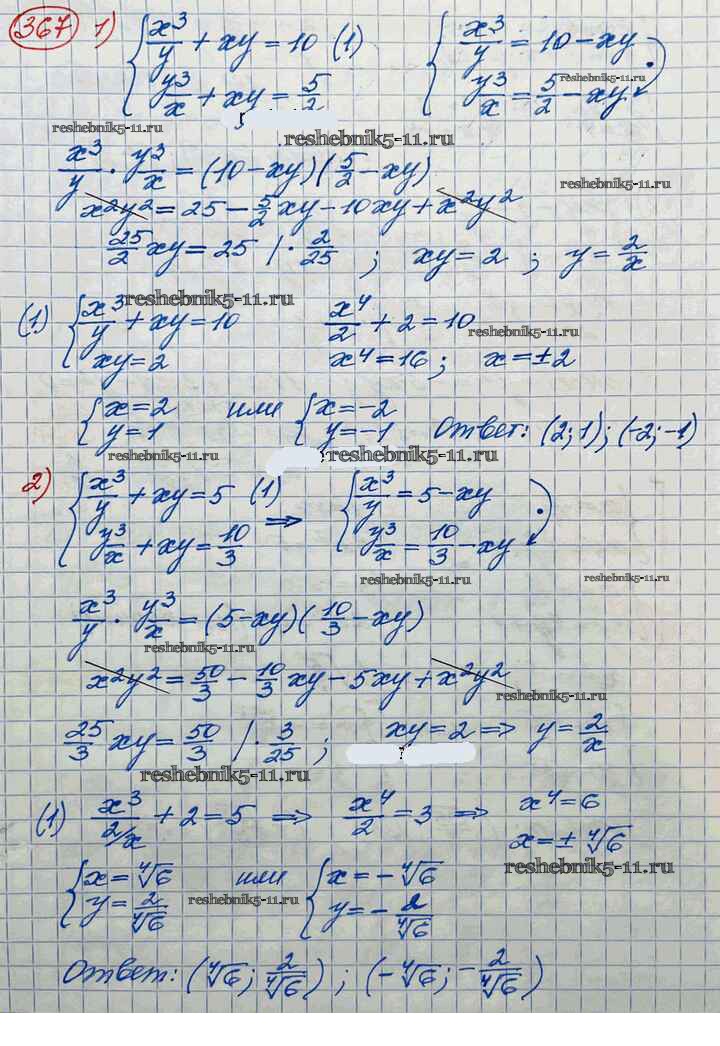 367 1) { x³/y + xy = 10 (1) { x³/y = 10 − xy
y³/x + xy = 5/2 y³/x = 5/2 − xy ·
reshebnik5-11.ru
reshebnik5-11.ru
reshebnik5-11.ru
x³/y · y³/x = (10 − xy)(5/2 − xy)
reshebnik5-11.ru
x²y² = 25 − 5/2 xy − 10xy + x²y²
25/2 xy = 25 | · 2/25 ; xy = 2 ; y = 2/x
reshebnik5-11.ru
(1) { x³/y + xy = 10 x⁴/2 + 2 = 10
reshebnik5-11.ru
xy = 2 x⁴ = 16 ; x = ±2
{ x = 2 или { x = −2
y = 1 y = −1 Ответ: (2; 1); (−2; −1)
reshebnik5-11.ru
reshebnik5-11.ru
2) { x³/y + xy = 5 (1) ⇒ { x³/y = 5 − xy
y³/x + xy = 10/3 y³/x = 10/3 − xy ·
reshebnik5-11.ru
reshebnik5-11.ru
x³/y · y³/x = (5 − xy)(10/3 − xy)
reshebnik5-11.ru
x²y² = 50/3 − 10/3 xy − 5xy + x²y²
reshebnik5-11.ru
25/3 xy = 50/3 | · 3/25 ; xy = 2 ⇒ y = 2/x
?
reshebnik5-11.ru
(1) x³/2/x + 2 = 5 ⇒ x⁴/2 = 3 ⇒ x⁴ = 6
x = ± ⁴√6
reshebnik5-11.ru
{ x = ⁴√6 или { x = − ⁴√6
y = 2/⁴√6 y = − 2/⁴√6
reshebnik5-11.ru
Ответ: (⁴√6; 2/⁴√6) ; (−⁴√6; −2/⁴√6)